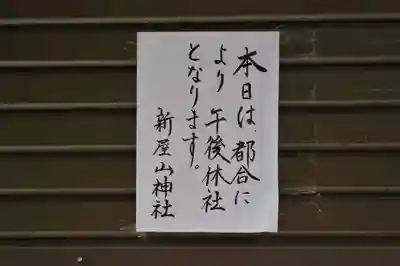 本日は、都合に
より 午後休社
となります。
新屋山神社